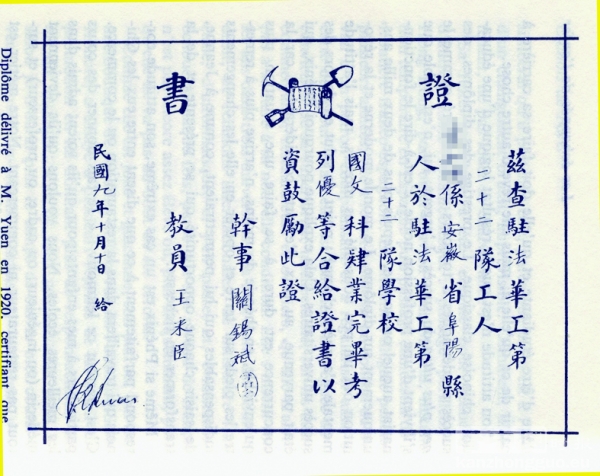 證書
茲查駐法華工第
二十二隊工人
係安徽省阜陽縣
人於駐法華工第
二十二隊學校
國文科肄業完畢考
列優等合給證書以
資鼓勵此證
幹事 關錫斌
教員 王來臣
民國九年十月十日 給
Diplôme délivré à M. Yuen en 1920, certifiant que